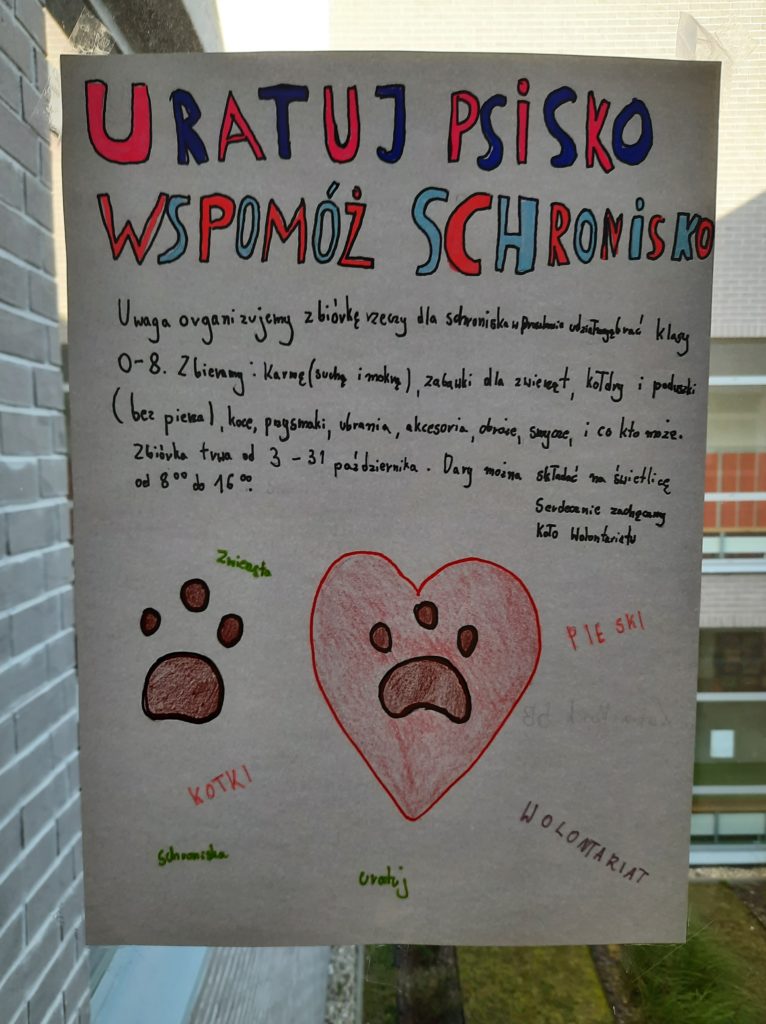 URATUJ PSISKO
WSPOMÓŻ SCHRONISKO
Uwaga organizujemy zbiórkę rzeczy dla schroniska w udział mogą brać klasy
0-8. Zbieramy: Karmę (suchą i mokrą), zabawki dla zwierząt, kołdry i poduszki
(bez pierza), koce, przysmaki, ubrania, akcesoria, obroże, smycze, i co kto może.
Zbiórka trwa od 3-31 października. Dary można składać na świetlicę
od 8⁰⁰ do 16⁰⁰.
Serdecznie zachęcamy
Koło Wolontariatu
Zwierzęta
PIESKI
KOTKI
WOLONTARIAT
Schroniska
uratuj